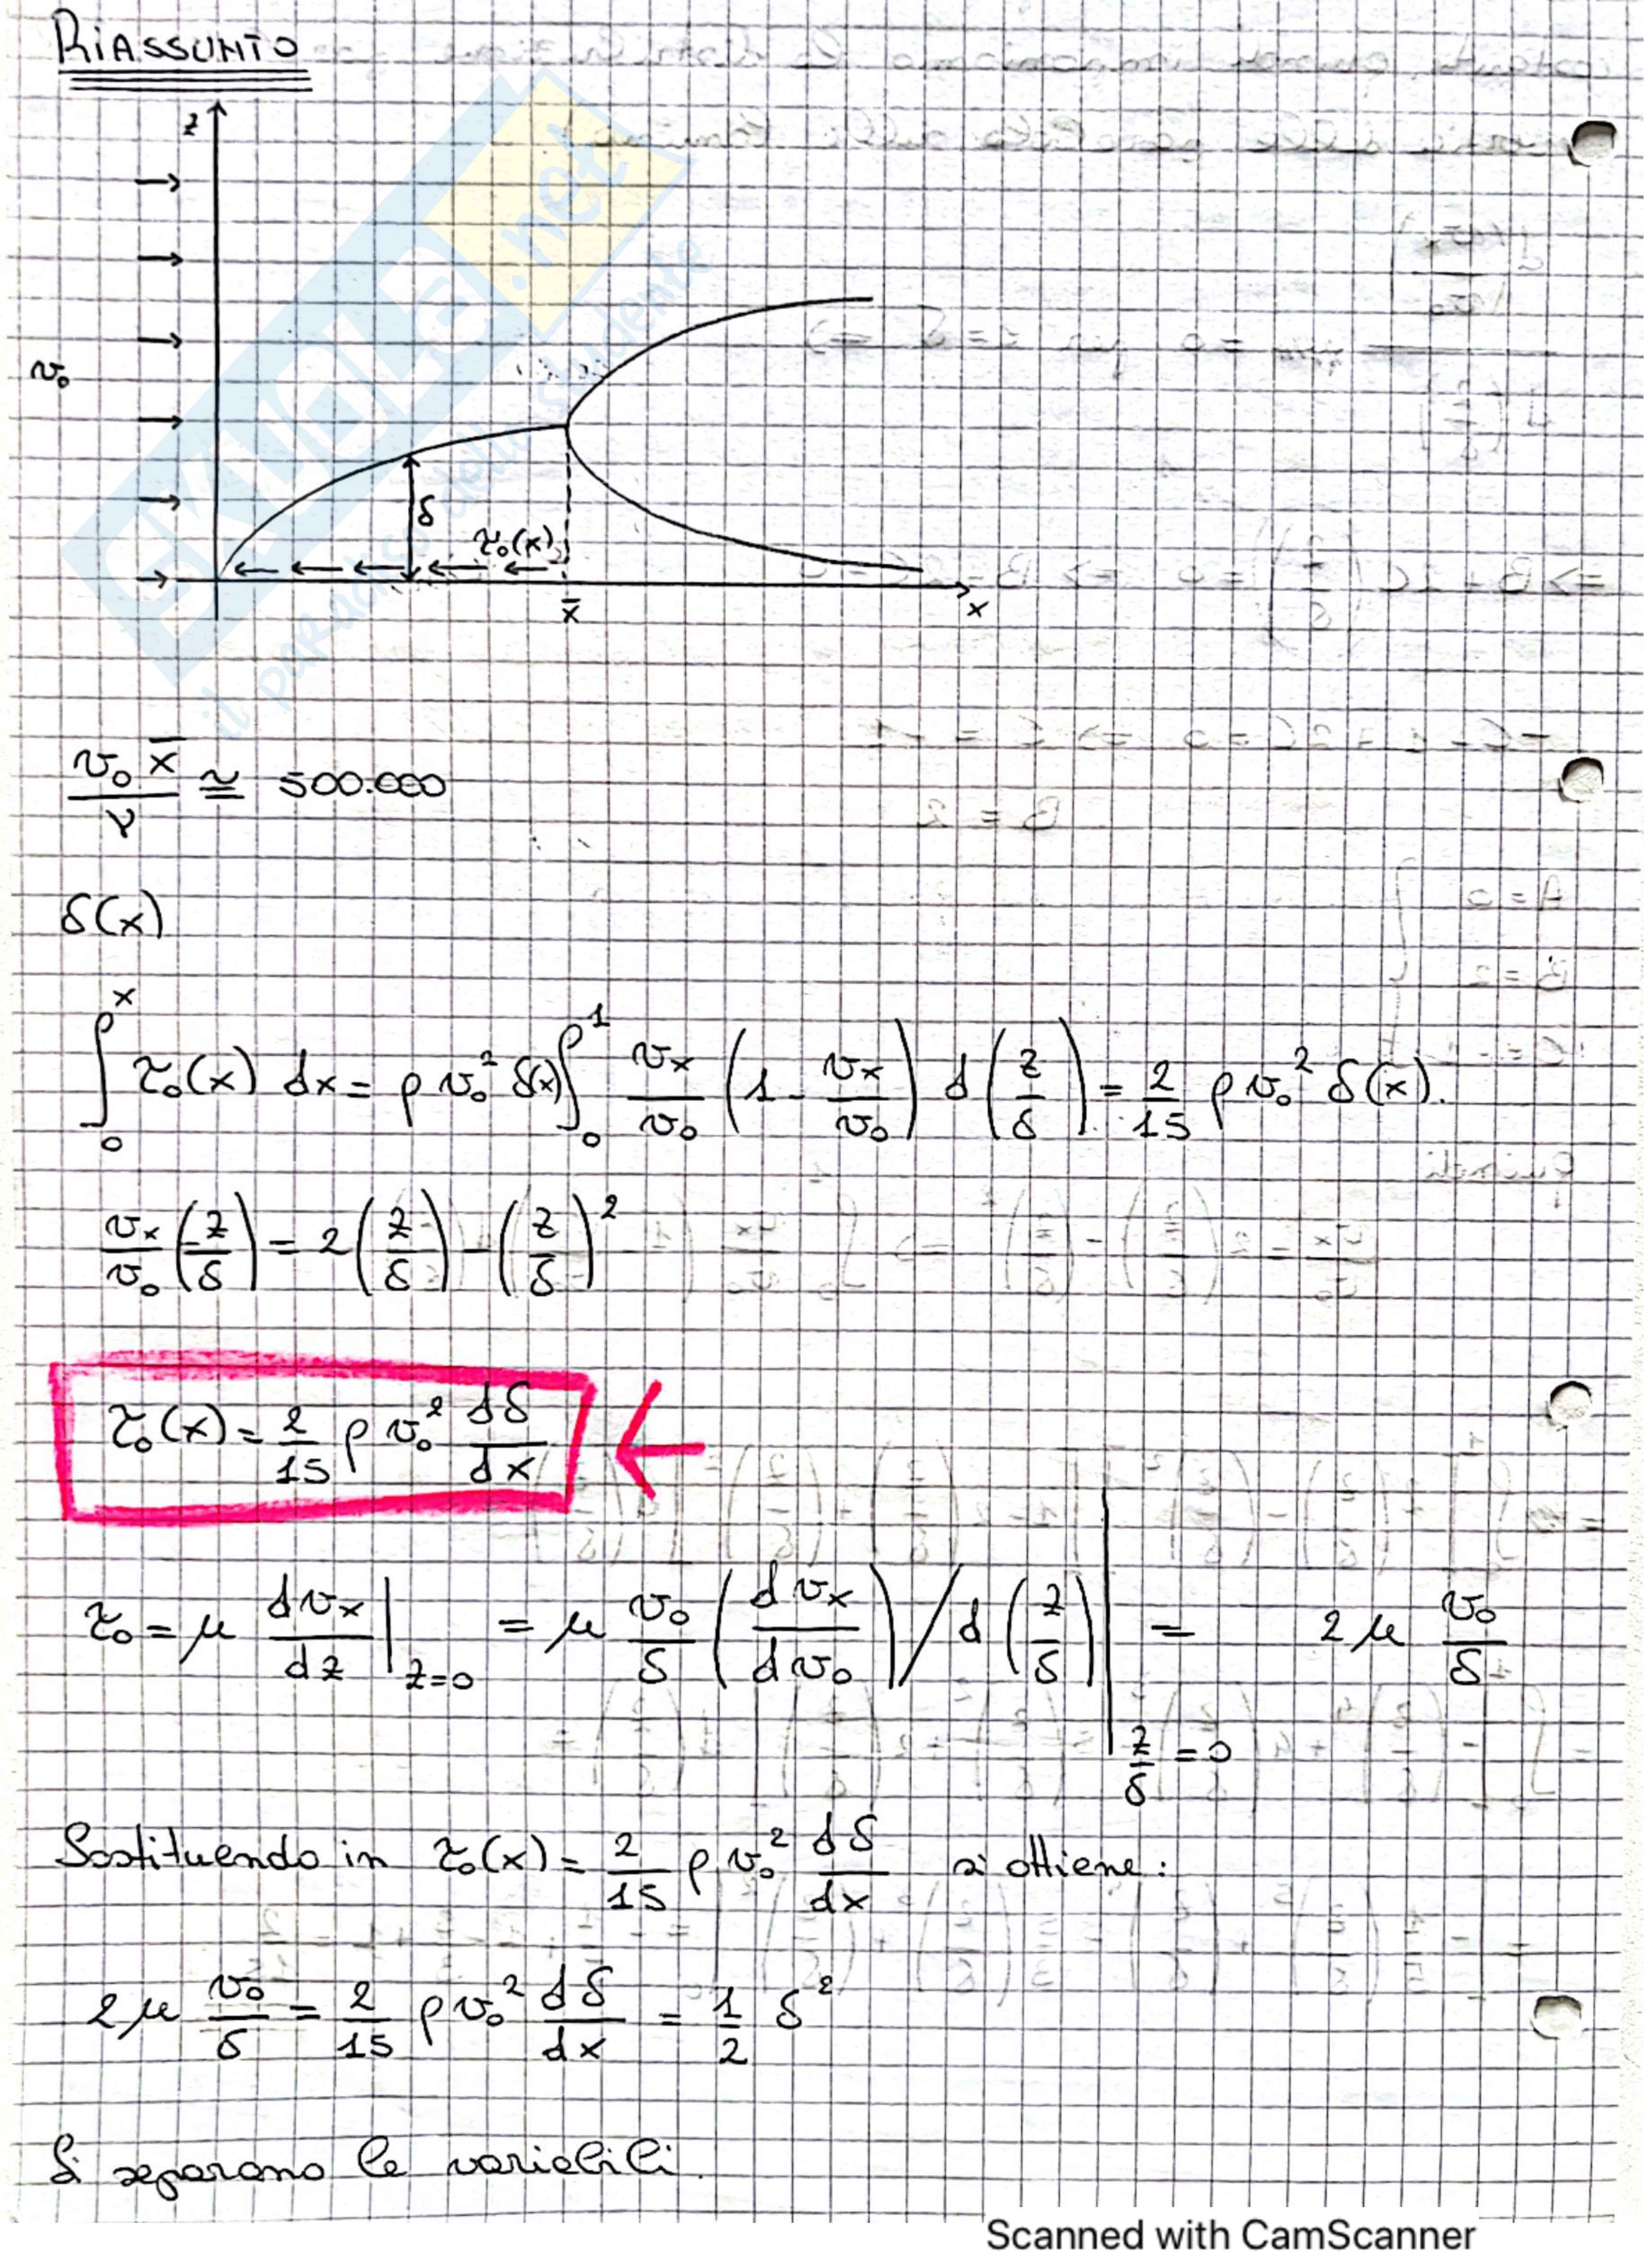 RIASSUNTO
z
v₀
δ
τ₀(x)
x̄
x
SKUOLA.net
il paradiso dello studente
v₀ x̄ / ν ≅ 500.000
δ(x)
∫₀ˣ τ₀(x) dx = ρ v₀² δ(x) ∫₀¹ vₓ/v₀ (1 - vₓ/v₀) d(z/δ) = 2/15 ρ v₀² δ(x).
vₓ/v₀ (z/δ) = 2(z/δ) - (z/δ)²
τ₀(x) = 2/15 ρ v₀² dδ/dx
τ₀ = μ dvₓ/dz |z=0 = μ v₀/δ (dvₓ/dv₀) / d(z/δ) |z/δ=0 = 2μ v₀/δ
Sostituendo in τ₀(x) = 2/15 ρ v₀² dδ/dx si ottiene:
2μ v₀/δ = 2/15 ρ v₀² dδ/dx = 1/2 δ²
Si separano le variabili.
Scanned with CamScanner